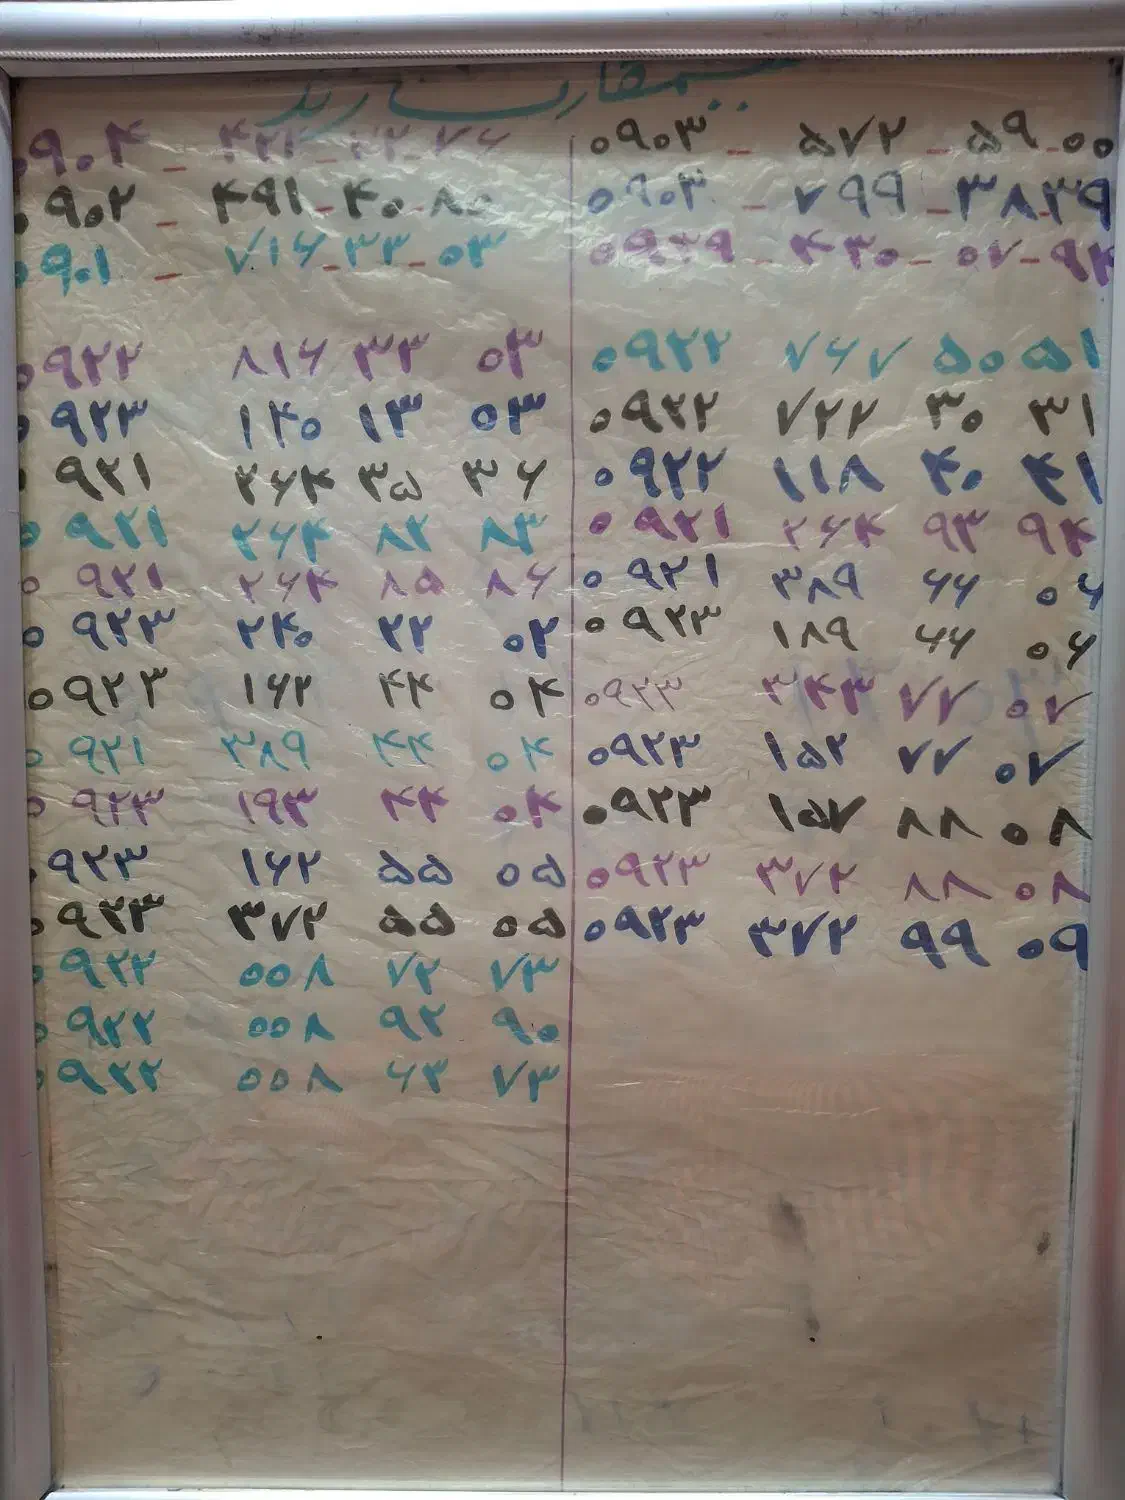 سیمکارت رند
۰۹۰۴ - ۴۲۴ - ۲۲ - ۷۶
۰۹۰۲ - ۴۹۱ - ۴۰ - ۸۰
۰۹۰۱ - ۷۱۶ - ۳۳ - ۰۳
۰۹۲۲ ۸۱۶ ۳۳ ۰۳
۰۹۲۳ ۱۴۰ ۱۳ ۰۳
۰۹۲۱ ۲۶۴ ۳۵ ۳۶
۰۹۲۱ ۲۶۴ ۸۲ ۸۳
۰۹۲۱ ۲۶۴ ۸۵ ۸۶
۰۹۲۳ ۲۴۰ ۲۲ ۰۲
۰۹۲۳ ۱۶۲ ۴۴ ۰۴
۰۹۲۱ ۳۸۹ ۴۴ ۰۴
۰۹۲۳ ۱۹۳ ۴۴ ۰۴
۰۹۲۳ ۱۶۲ ۵۵ ۰۵
۰۹۲۳ ۳۷۲ ۵۵ ۰۵
۰۹۲۲ ۰۰۸ ۷۲ ۷۳
۰۹۲۲ ۰۰۸ ۹۲ ۹۰
۰۹۲۲ ۰۰۸ ۶۳ ۷۳
۰۹۰۳ - ۵۷۲ - ۵۹ - ۰۰
۰۹۰۳ - ۷۹۹ - ۳۸ - ۳۹
۰۹۰۹ - ۴۳۰ - ۰۷ - ۹۴
۰۹۲۲ ۷۶۷ ۵۰ ۵۱
۰۹۲۲ ۷۲۲ ۳۰ ۳۱
۰۹۲۲ ۱۱۸ ۴۰ ۴۱
۰۹۲۱ ۲۶۴ ۹۳ ۹۴
۰۹۲۱ ۳۸۹ ۶۶ ۰۶
۰۹۲۳ ۱۸۹ ۶۶ ۰۶
۰۹۲۳ ۳۴۳ ۷۷ ۰۷
۰۹۲۳ ۱۵۲ ۷۷ ۰۷
۰۹۲۳ ۱۵۷ ۸۸ ۰۸
۰۹۲۳ ۳۷۲ ۸۸ ۰۸
۰۹۲۳ ۳۷۲ ۹۹ ۰۹